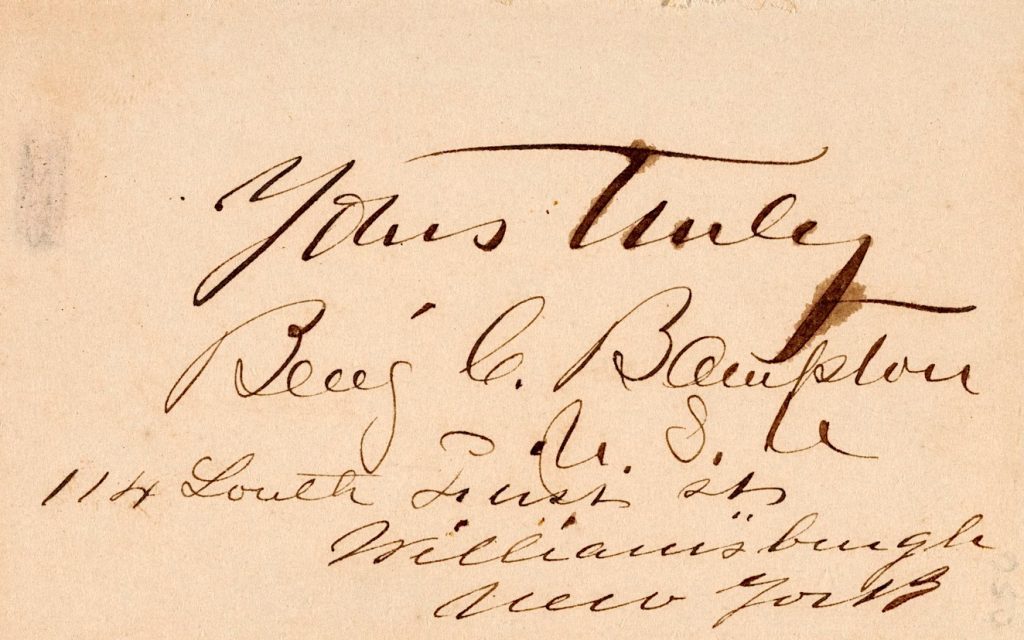 Yours Truly
Benj C. Bampton
U. S. N
114 South First st
Williamsburgh
New York